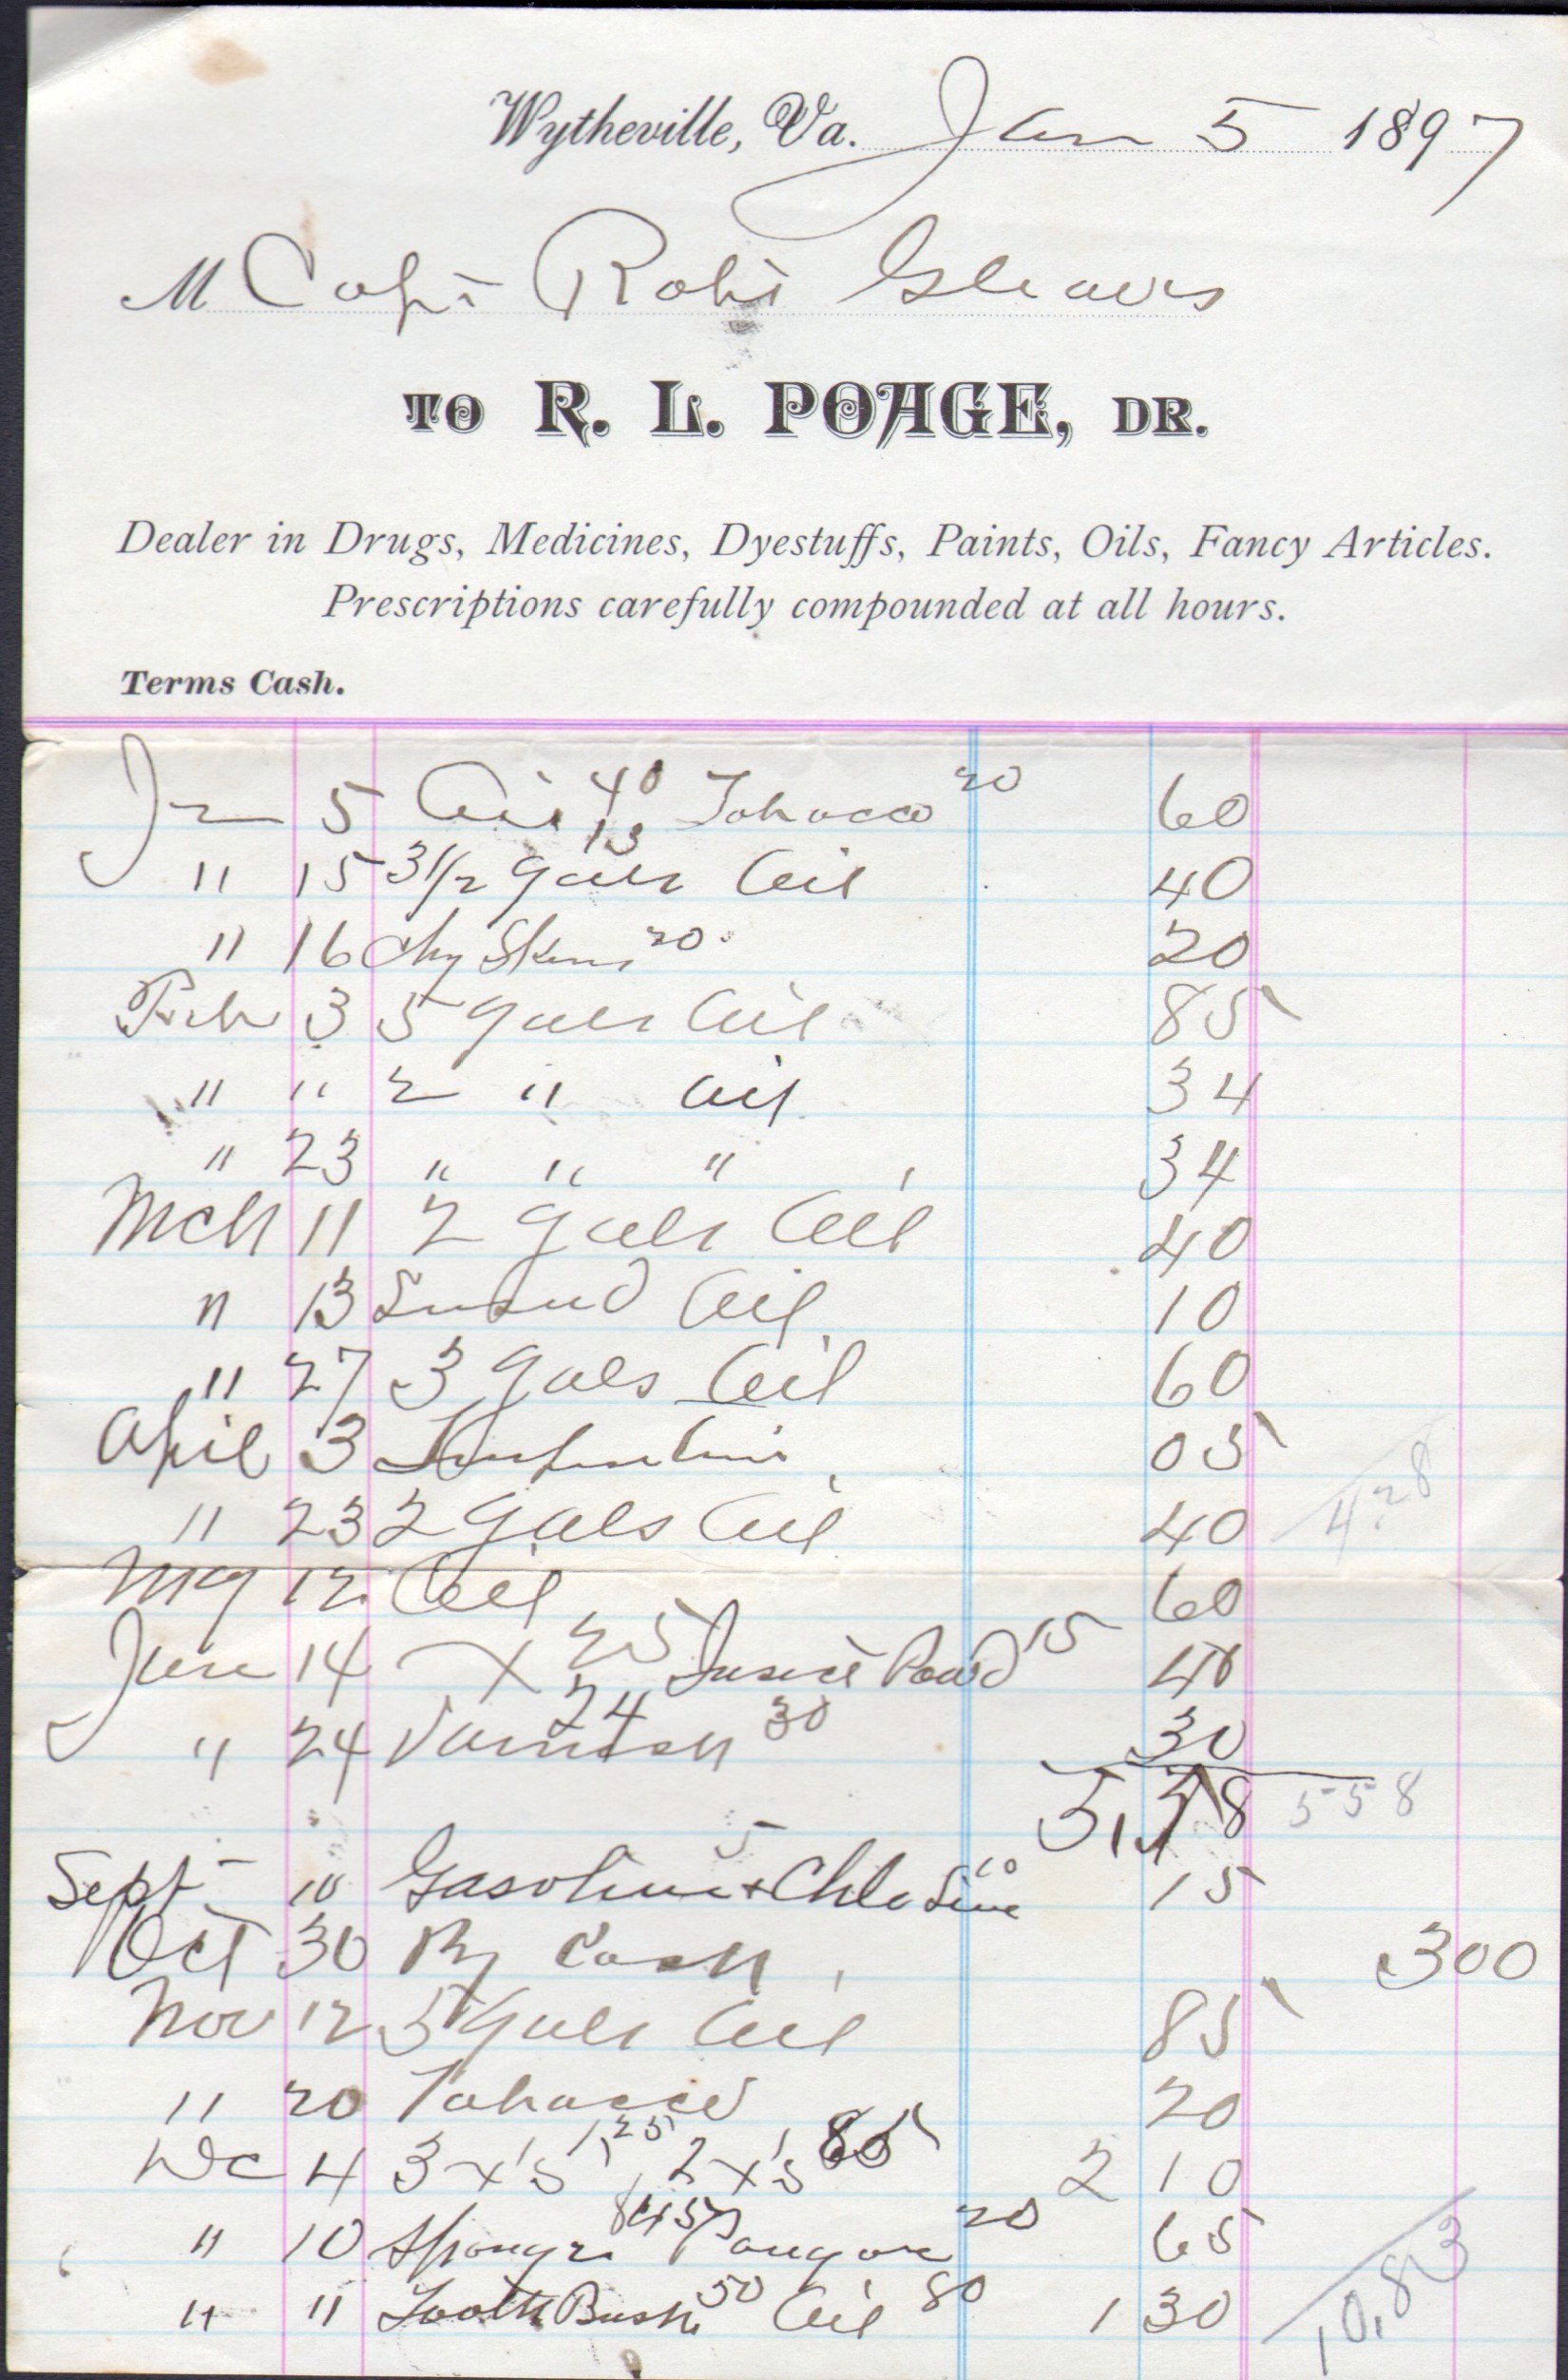 Wytheville, Va. Jan 5 1897
M Capt Robt Gleaves
TO R. L. POAGE, DR.
Dealer in Drugs, Medicines, Dyestuffs, Paints, Oils, Fancy Articles.
Prescriptions carefully compounded at all hours.
Terms Cash.
Jan 5 Oil 40 Tobacco 20 60
" 15 3 1/2 gals Oil 40
" 16 Skins 20 20
Feb 3 5 gals Oil 85
" " 2 " Oil 34
" 23 " " " 34
Mch 11 2 gals Oil 40
" 13 Linseed Oil 10
" 27 3 gals Oil 60
April 3 Turpentine 05
" 23 2 gals Oil 40 4.28
May 12 Oil 60
June 14 X 25 Insect Powd 15 40
" 24 Varnish 30 30
5,58 558
Sept 10 Gasoline 5 + Chlo Lime 10 15
Oct 30 By Cash 300
Nov 12 5 gals Oil 85
" 20 Tobacco 20
Dec 4 3 x's 1,25 2 x's 85 2 10
" 10 Sponge 45 20 65
" 11 Tooth Brush 50 Oil 80 1 30
10,83